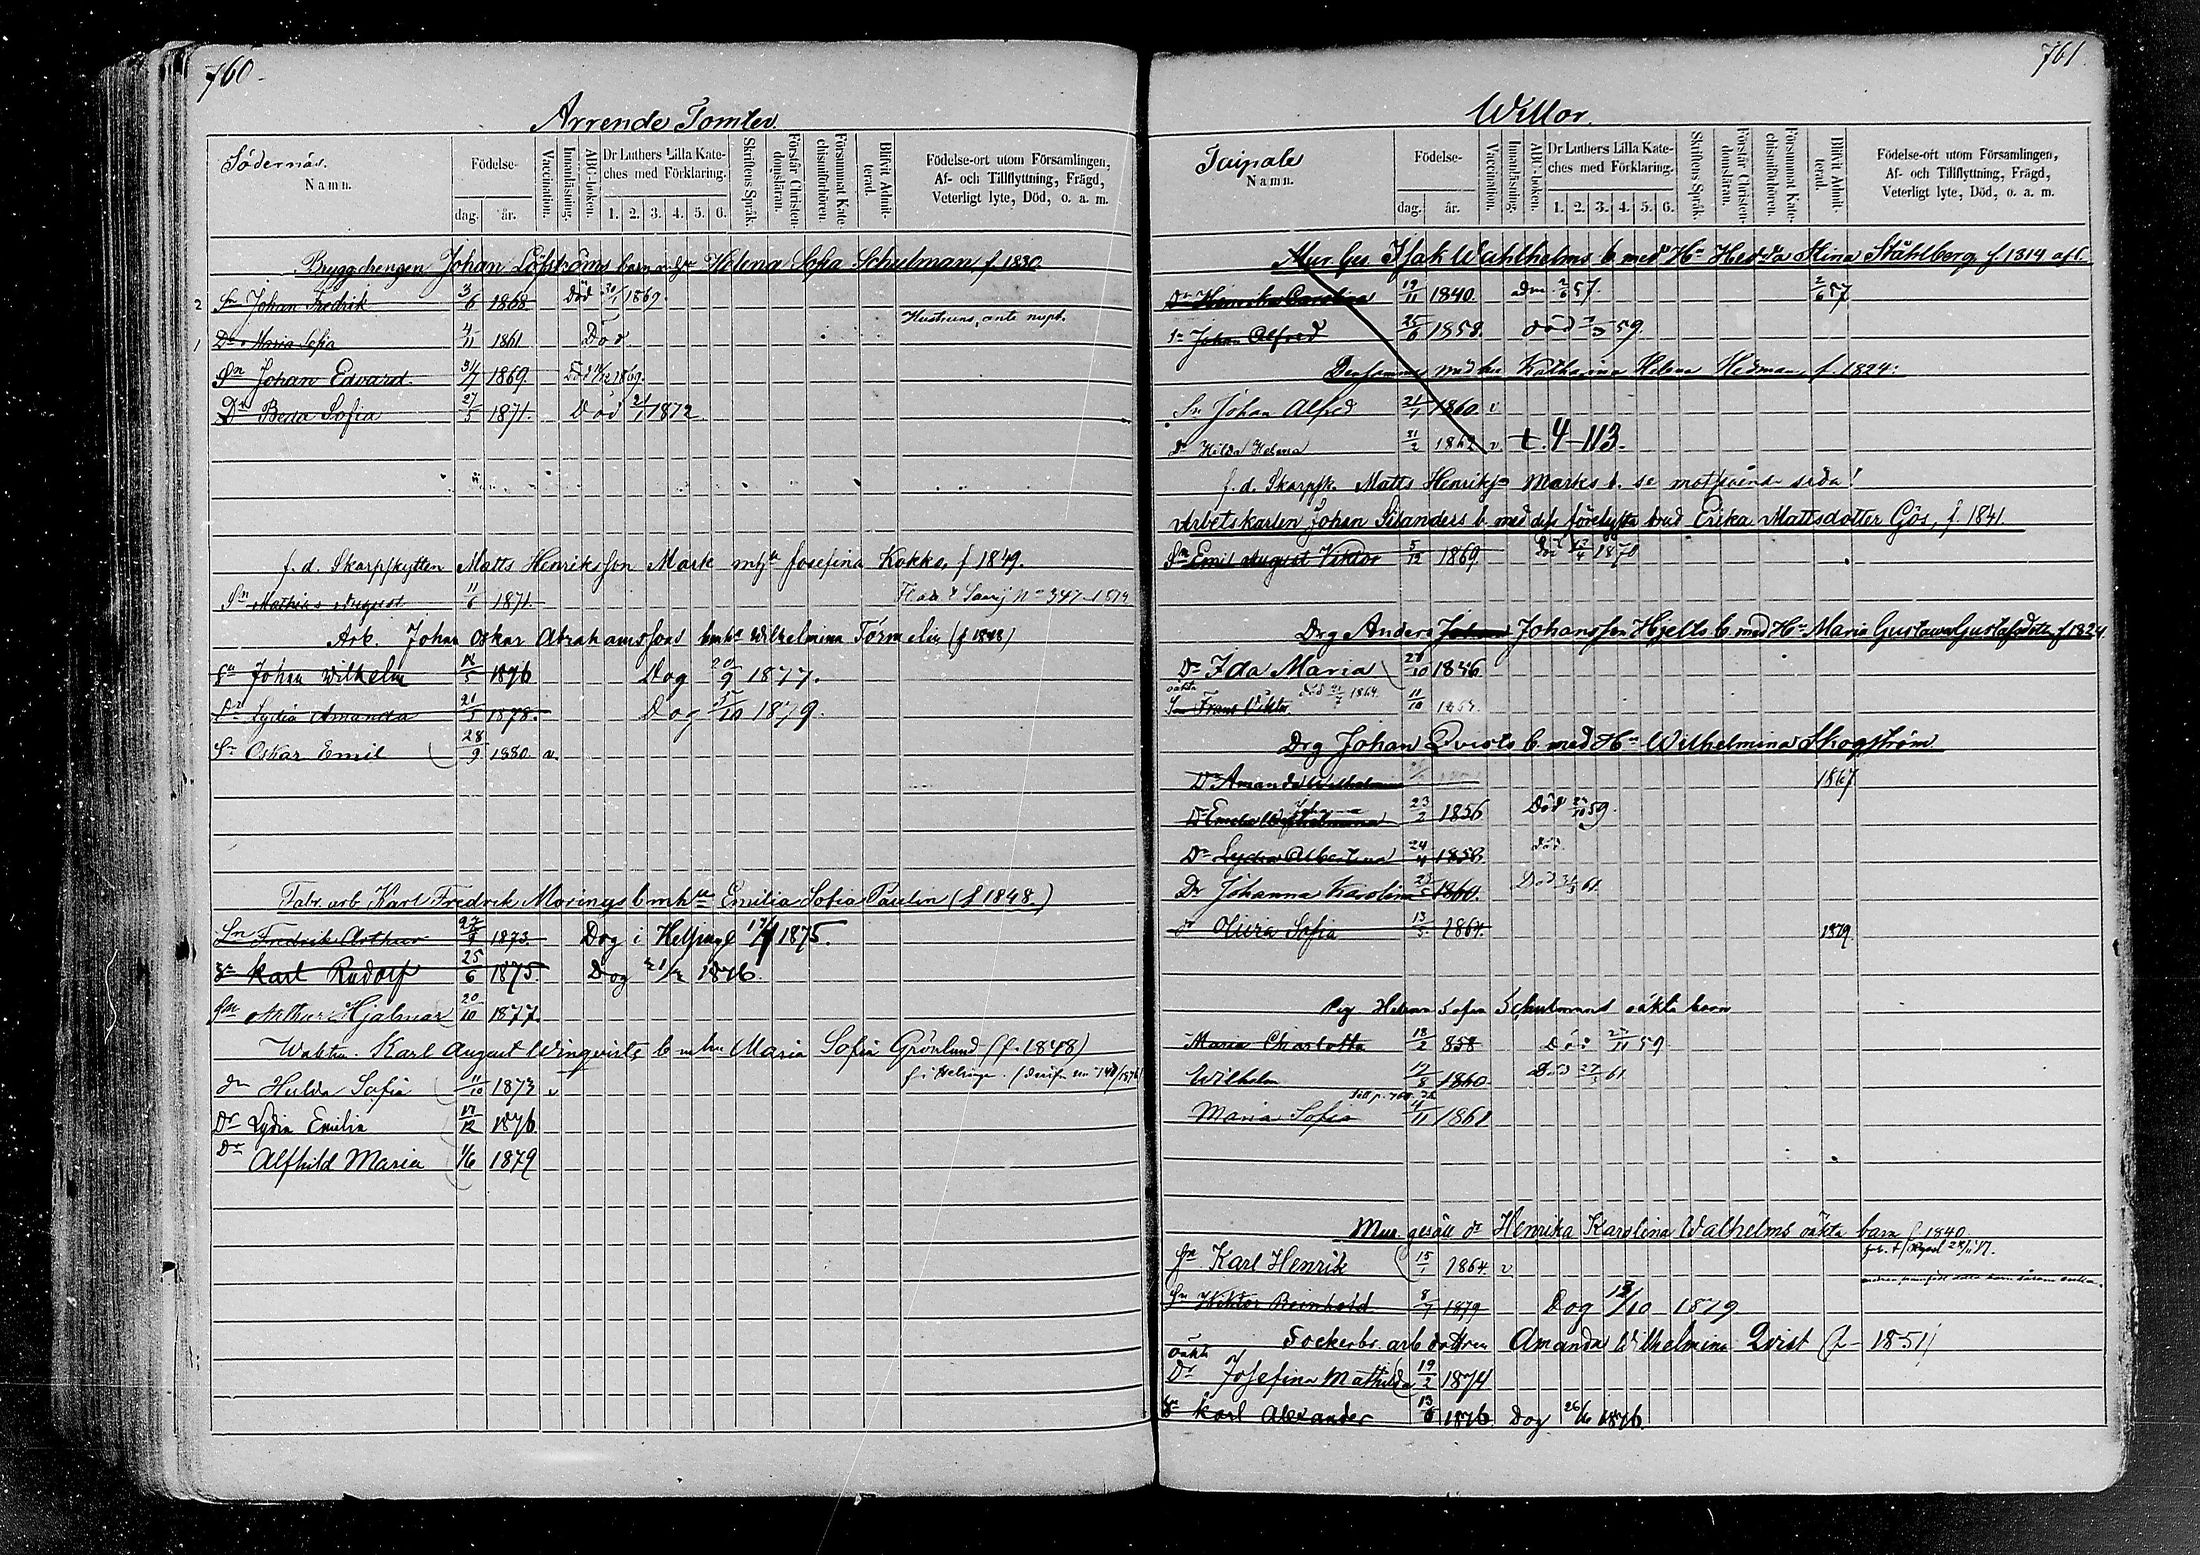 760.
Arrende Tomter.
Södernäs.
Namn.
Födelse-
dag.
år.
Vaccination.
Innanläsning.
ABC-boken.
Dr Luthers Lilla Kate-
ches med Förklaring.
1. 2. 3. 4. 5. 6.
Skriftens Språk.
Förstår Christen-
domsläran.
Försummat Kate-
chismiförhören.
Blifvit Admit-
terad.
Födelse-ort utom Församlingen,
Af- och Tillflyttning, Frägd,
Veterligt lyte, Död, o. a. m.
Bryggdrengen Johan Löfströms barn Helena Sofia Schulman, f. 1830.
2 Sn Johan Fredrik 3/6 1868 död 1869
Hustruns, ante nupt.
1 Dr Maria Sofia 4/11 1861 Död
Sn Johan Edvard 31/7 1869 Död 1869.
Dr Sofia 27/5 1871. Död 21/1 1872
f. d. Skarpskytten Matts Henriksson Mark mhu Josefina Kokko, f 1849.
Sn Mathias August 11/6 1871.
Arb. Johan Oskar Abrahamssons bmhu Wilhelmina Törmelin (f 1848)
Sn Johan Wilhelm 12/5 1876 Dog 20/9 1877.
Dr Lydia Amanda 21/5 1878. Dog 5/10 1879.
Sn Oskar Emil 28/9 1880 v.
Fabr. arb Karl Fredrik Morings b mhu Emilia Sofia Paulin (f 1848)
Sn Fredrik Arthur 1873. Dog i Helsingf 1875.
Sn Karl Rudolf 25/6 1875 Dog 1876.
Sn Arthur Hjalmar 20/10 1877.
Karl August Winqvists b mhu Maria Sofia Grönlund (f. 1848)
Dr Hulda Sofia 11/10 1873 v
Dr Lydia Emilia 17/12 1876
Dr Alfhild Maria 1/6 1879
761
Willor.
Taipale
Namn.
Födelse-
dag.
år.
Vaccination.
Innanläsning.
ABC-boken.
Dr Luthers Lilla Kate-
ches med Förklaring.
1. 2. 3. 4. 5. 6.
Skriftens Språk.
Förstår Christen-
domsläran.
Försummat Kate-
chismiförhören.
Blifvit Admit-
terad.
Födelse-ort utom Församlingen,
Af- och Tillflyttning, Frägd,
Veterligt lyte, Död, o. a. m.
Mur Ges Isak Wahlholms b med Hu Hedda Mina Ståhlberg f. 1814
Dr Henrika Carolina 19/11 1840. adm 2/6 57 2/6 57
Sn Johan Alfred 25/6 1858. död 59
Densammes med hu Katharina Helena Hedman, f. 1824.
Sn Johan Alfred 21/1 1860. v
Dr Hilda Helena 1862 v. t. 4-113.
f. d. Skarpsk. Matts Henriksson Marks b. se motstående sida!
Arbetskarlen Johan Silanders b med dess förelyfta brud Erika Mattsdotter Gös, f. 1841.
Sn Emil August Viktor 5/12 1869. Död 1870
Drg Anders Johan Johansson Hjelts b med Hu Maria Gustava Gustafsdotter f 1824
Dr Ida Maria 1856
oäkta
Sn Frans Viktor. död 1864 11/10
Drg Johan Qvists b med Hu Wilhelmina Skogström
Dr Amanda Wilhelmina 1867
Johanna
Dr Emelie 23/2 1856 Död 59.
Dr Lydia Albertina 24/4 1858. död
Dr Johanna Karolina 1860. Död 61
Dr Sofia 13/5 1864. 1879
Pig Helena Sofia Schulmans oäkta barn
Maria Charlotta 18/2 858 Död 59
Wilhelm 17/8 1860 Död 61
Maria Sofia 4/11 1861
Mur gesäll dr Henrika Karolina Walhelms oäkta barn f 1840
Sn Karl Henrik 15/1 1864. v
Sn Viktor Reinhold 8/7 1879 Dog 13/10 1879
Sockerbr. arb dottren Amanda Wilhelmina Qvist (f 1851)
oäkta
Dr Josefina Mathilda 19/2 1874
Sn Karl Alexander 13/6 1876 Dog 26/6 1876.